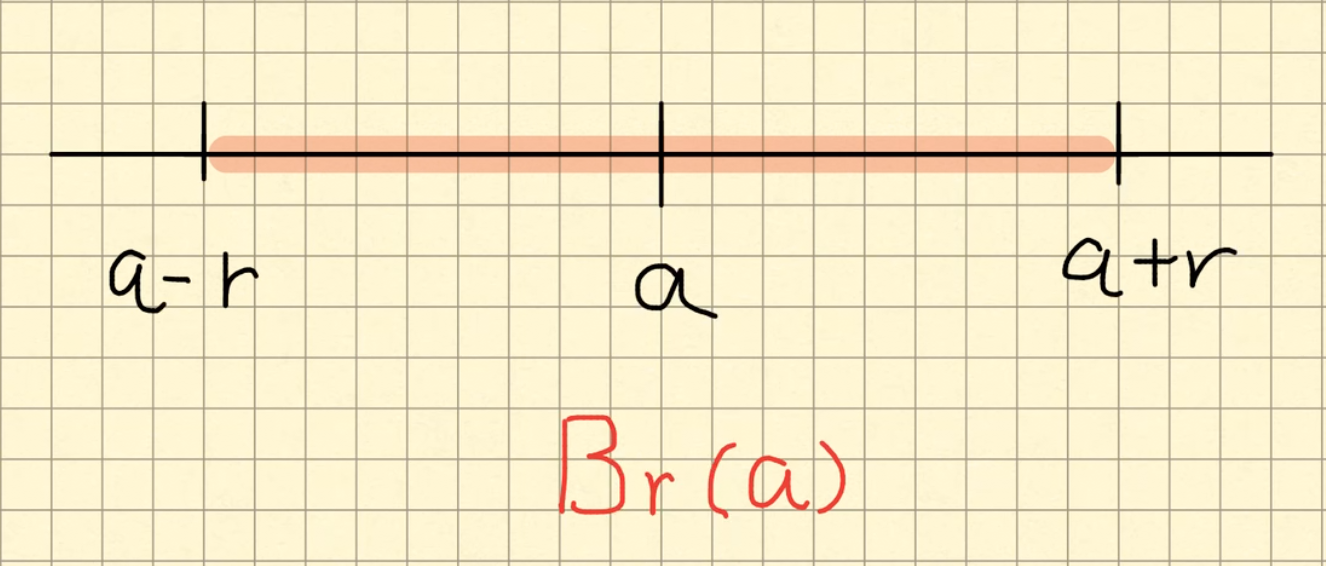 a-r a a+r
Br(a)